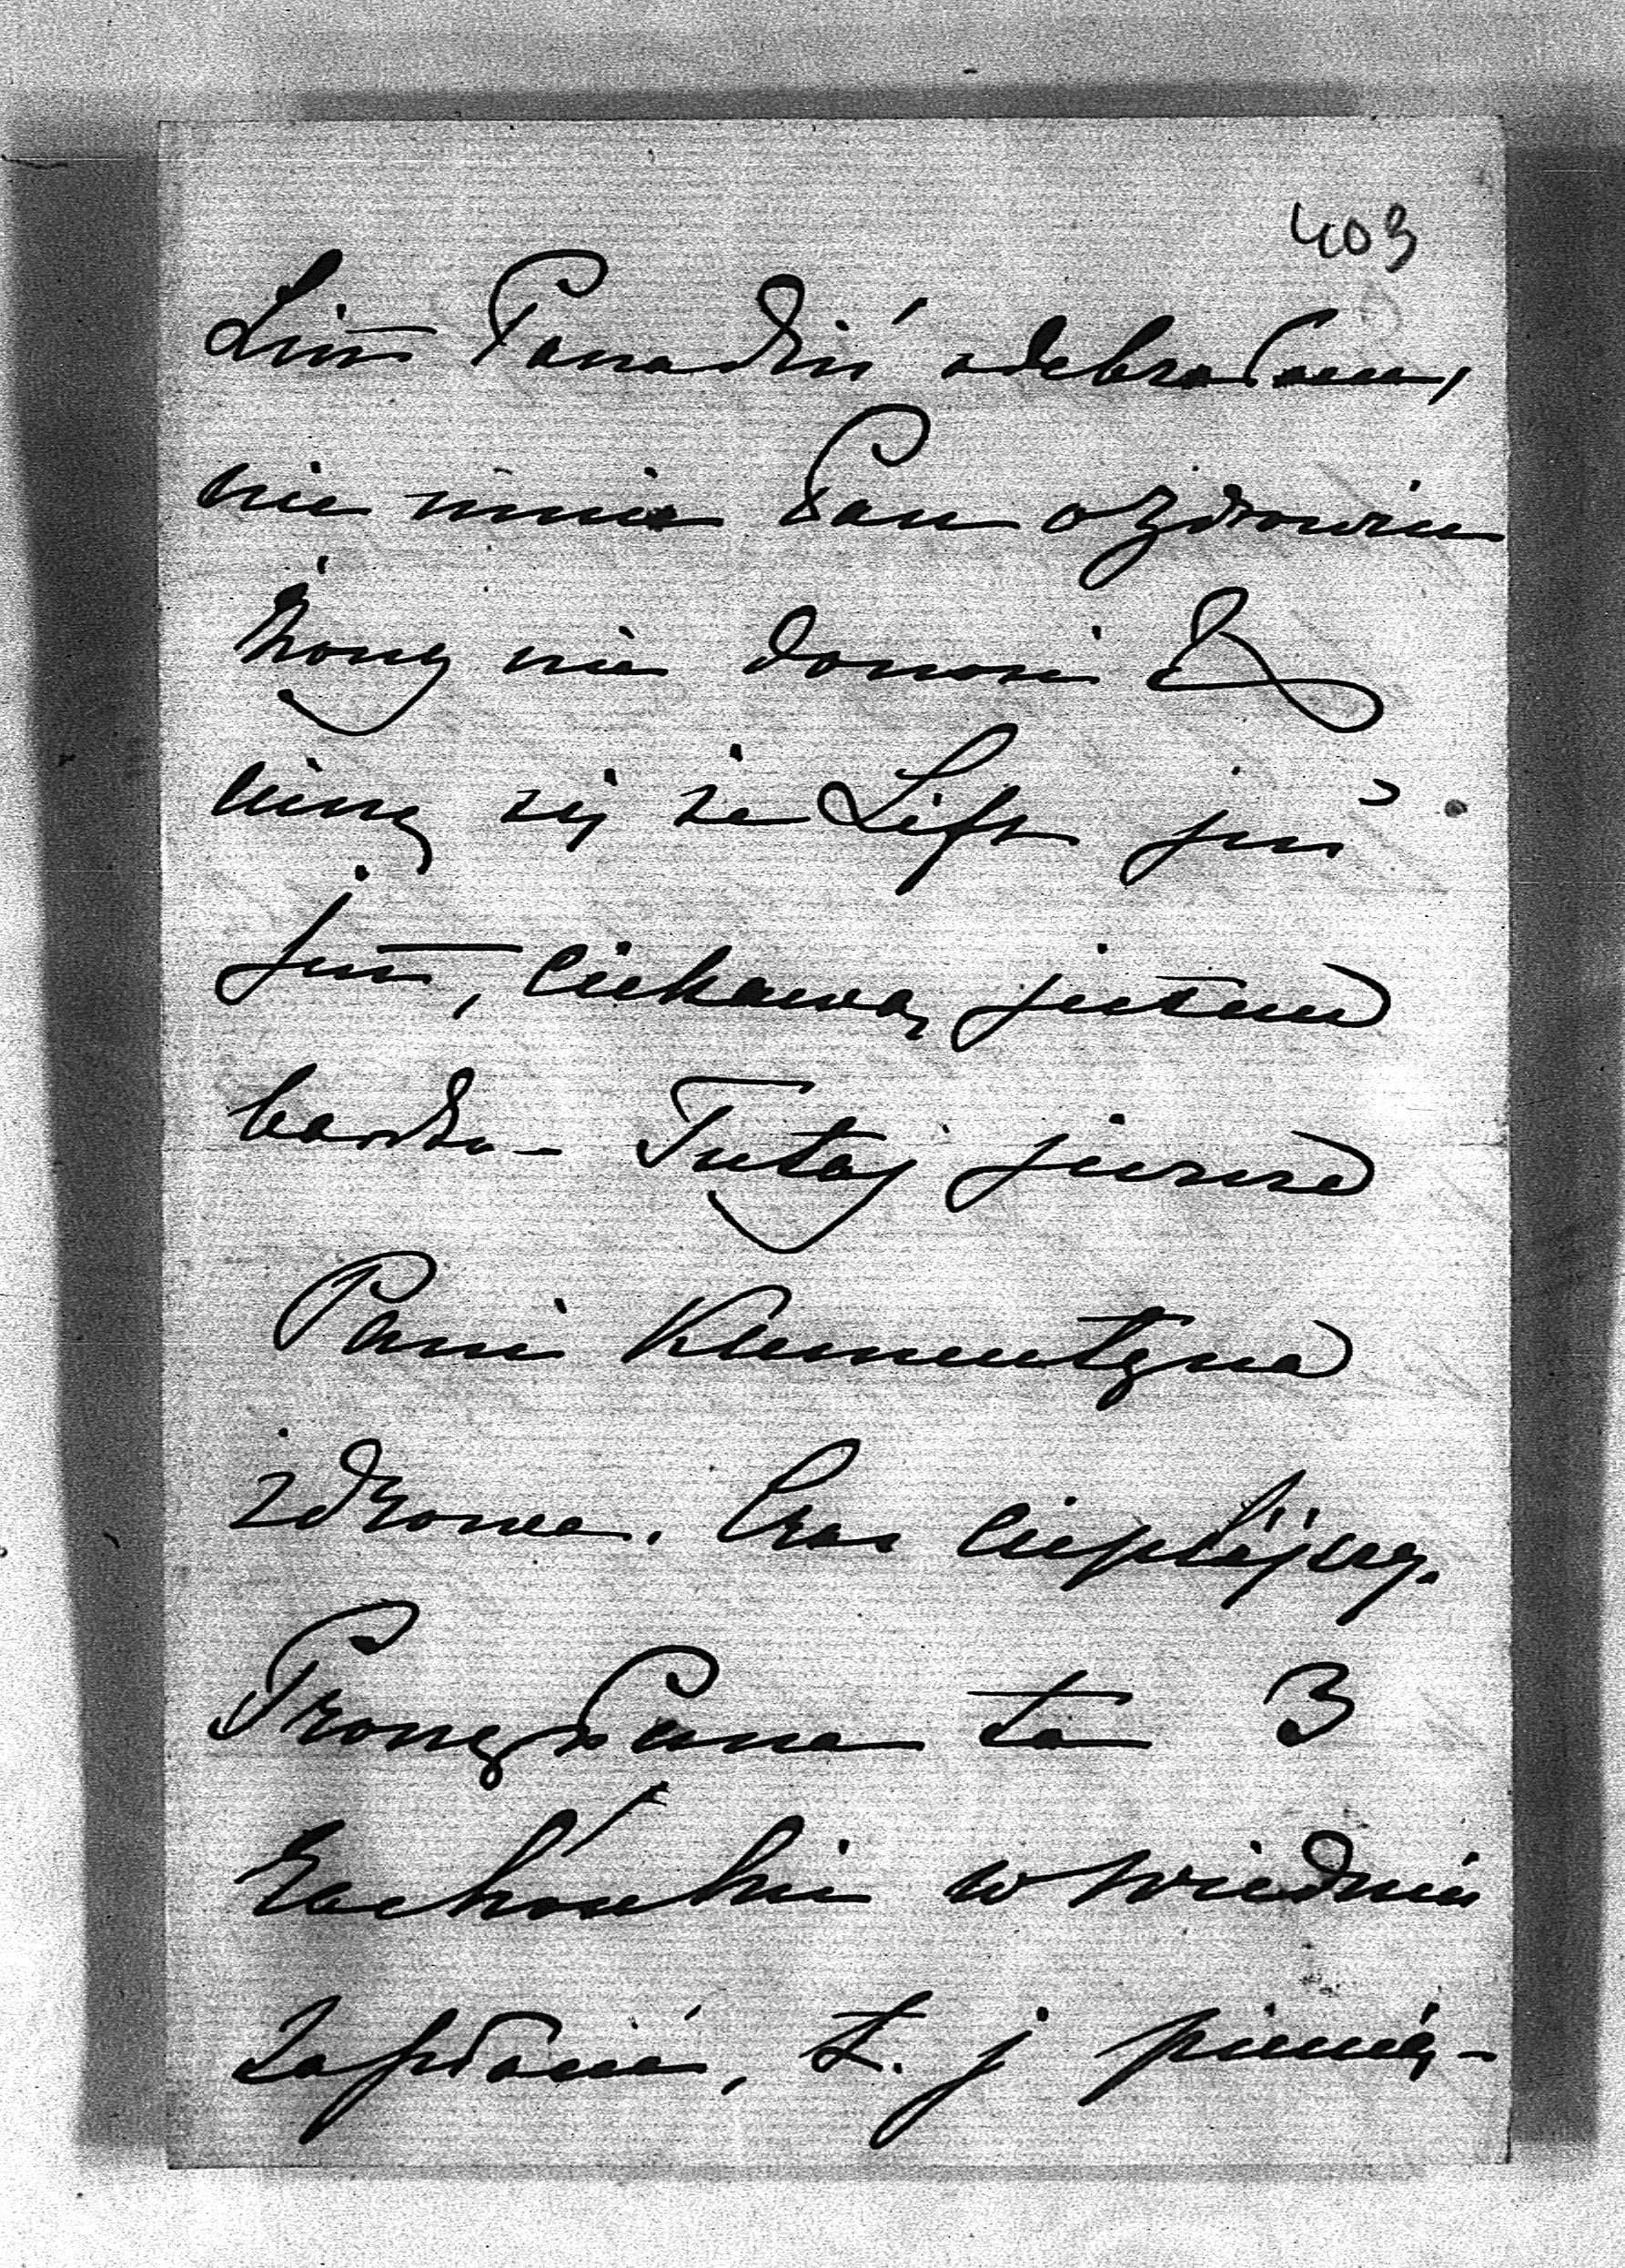 403
List Pana dziś odebrałam,
nic mnie Pan o zdrowiu
żony nie donosi
cieszę się że Lift już
jest, ciekawą jestem
bardzo – Tutaj jeszcze
Pani Klementyna
zdrowa. Czas cieplejszy.
Proszę Pana te 3
rachunki w Wiedniu
zapłacić, t. j pienię-